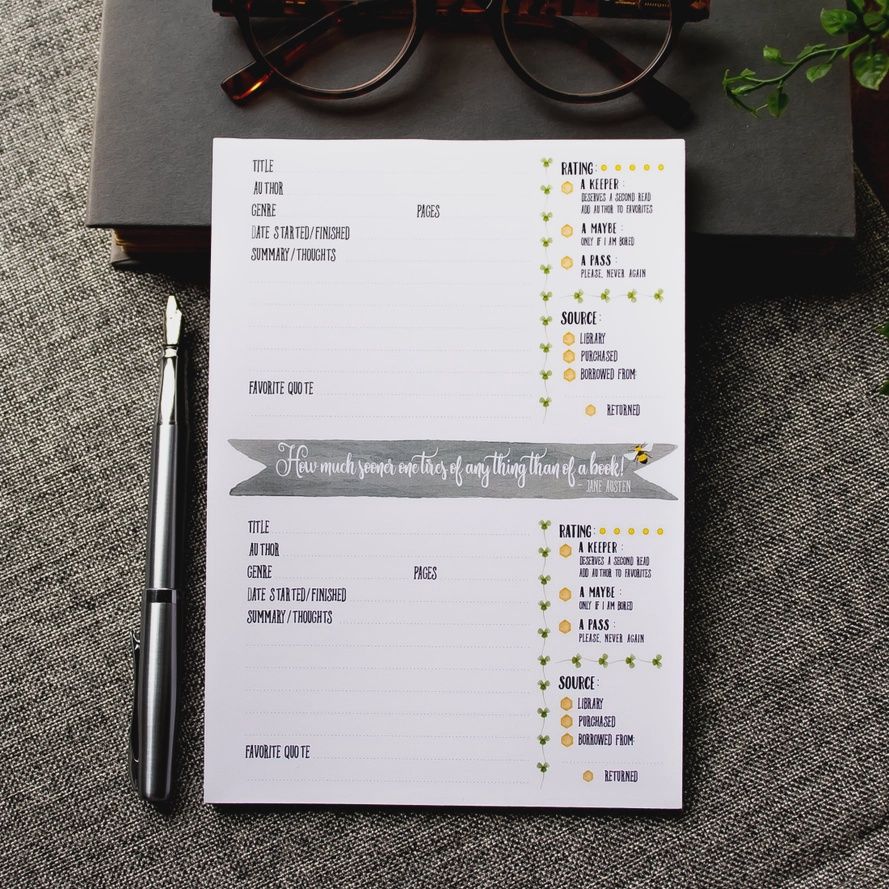 TITLE
AUTHOR
GENRE PAGES
DATE STARTED/FINISHED
SUMMARY/THOUGHTS
FAVORITE QUOTE
RATING:
A KEEPER:
DESERVES A SECOND READ
ADD AUTHOR TO FAVORITES
A MAYBE:
ONLY IF I AM BORED
A PASS:
PLEASE, NEVER AGAIN
SOURCE:
LIBRARY
PURCHASED
BORROWED FROM:
RETURNED
How much sooner one tires of any thing than of a book!
- JANE AUSTEN
TITLE
AUTHOR
GENRE PAGES
DATE STARTED/FINISHED
SUMMARY/THOUGHTS
FAVORITE QUOTE
RATING:
A KEEPER:
DESERVES A SECOND READ
ADD AUTHOR TO FAVORITES
A MAYBE:
ONLY IF I AM BORED
A PASS:
PLEASE, NEVER AGAIN
SOURCE:
LIBRARY
PURCHASED
BORROWED FROM:
RETURNED